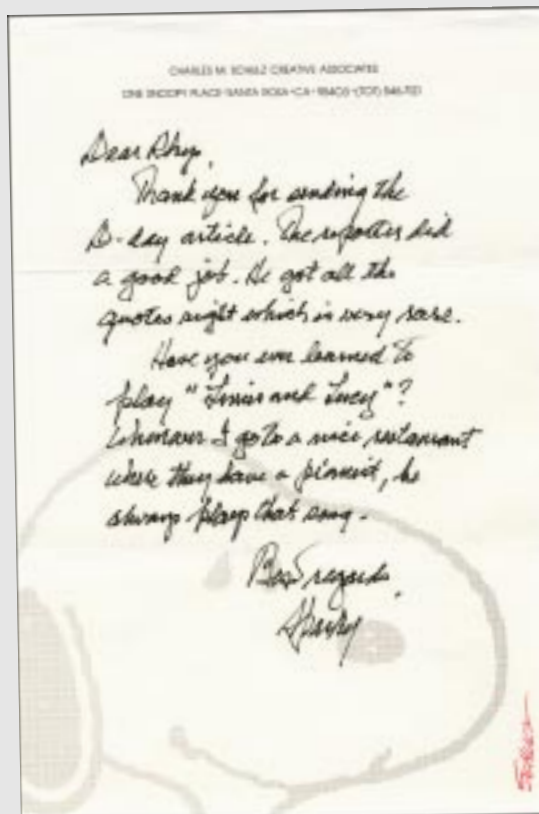 CHARLES M. SCHULZ CREATIVE ASSOCIATES
ONE SNOOPY PLACE-SANTA ROSA-CA-95403-(707) 546-7121
Dear
Thank you for sending the
D-day article. The reporter did
a good job. He got all the
quotes right which is very rare.
Have you ever learned to
play "Linus and Lucy"?
Whenever I go to a nice restaurant
where they have a pianist, he
always plays that song.
Best regards,
Sparky